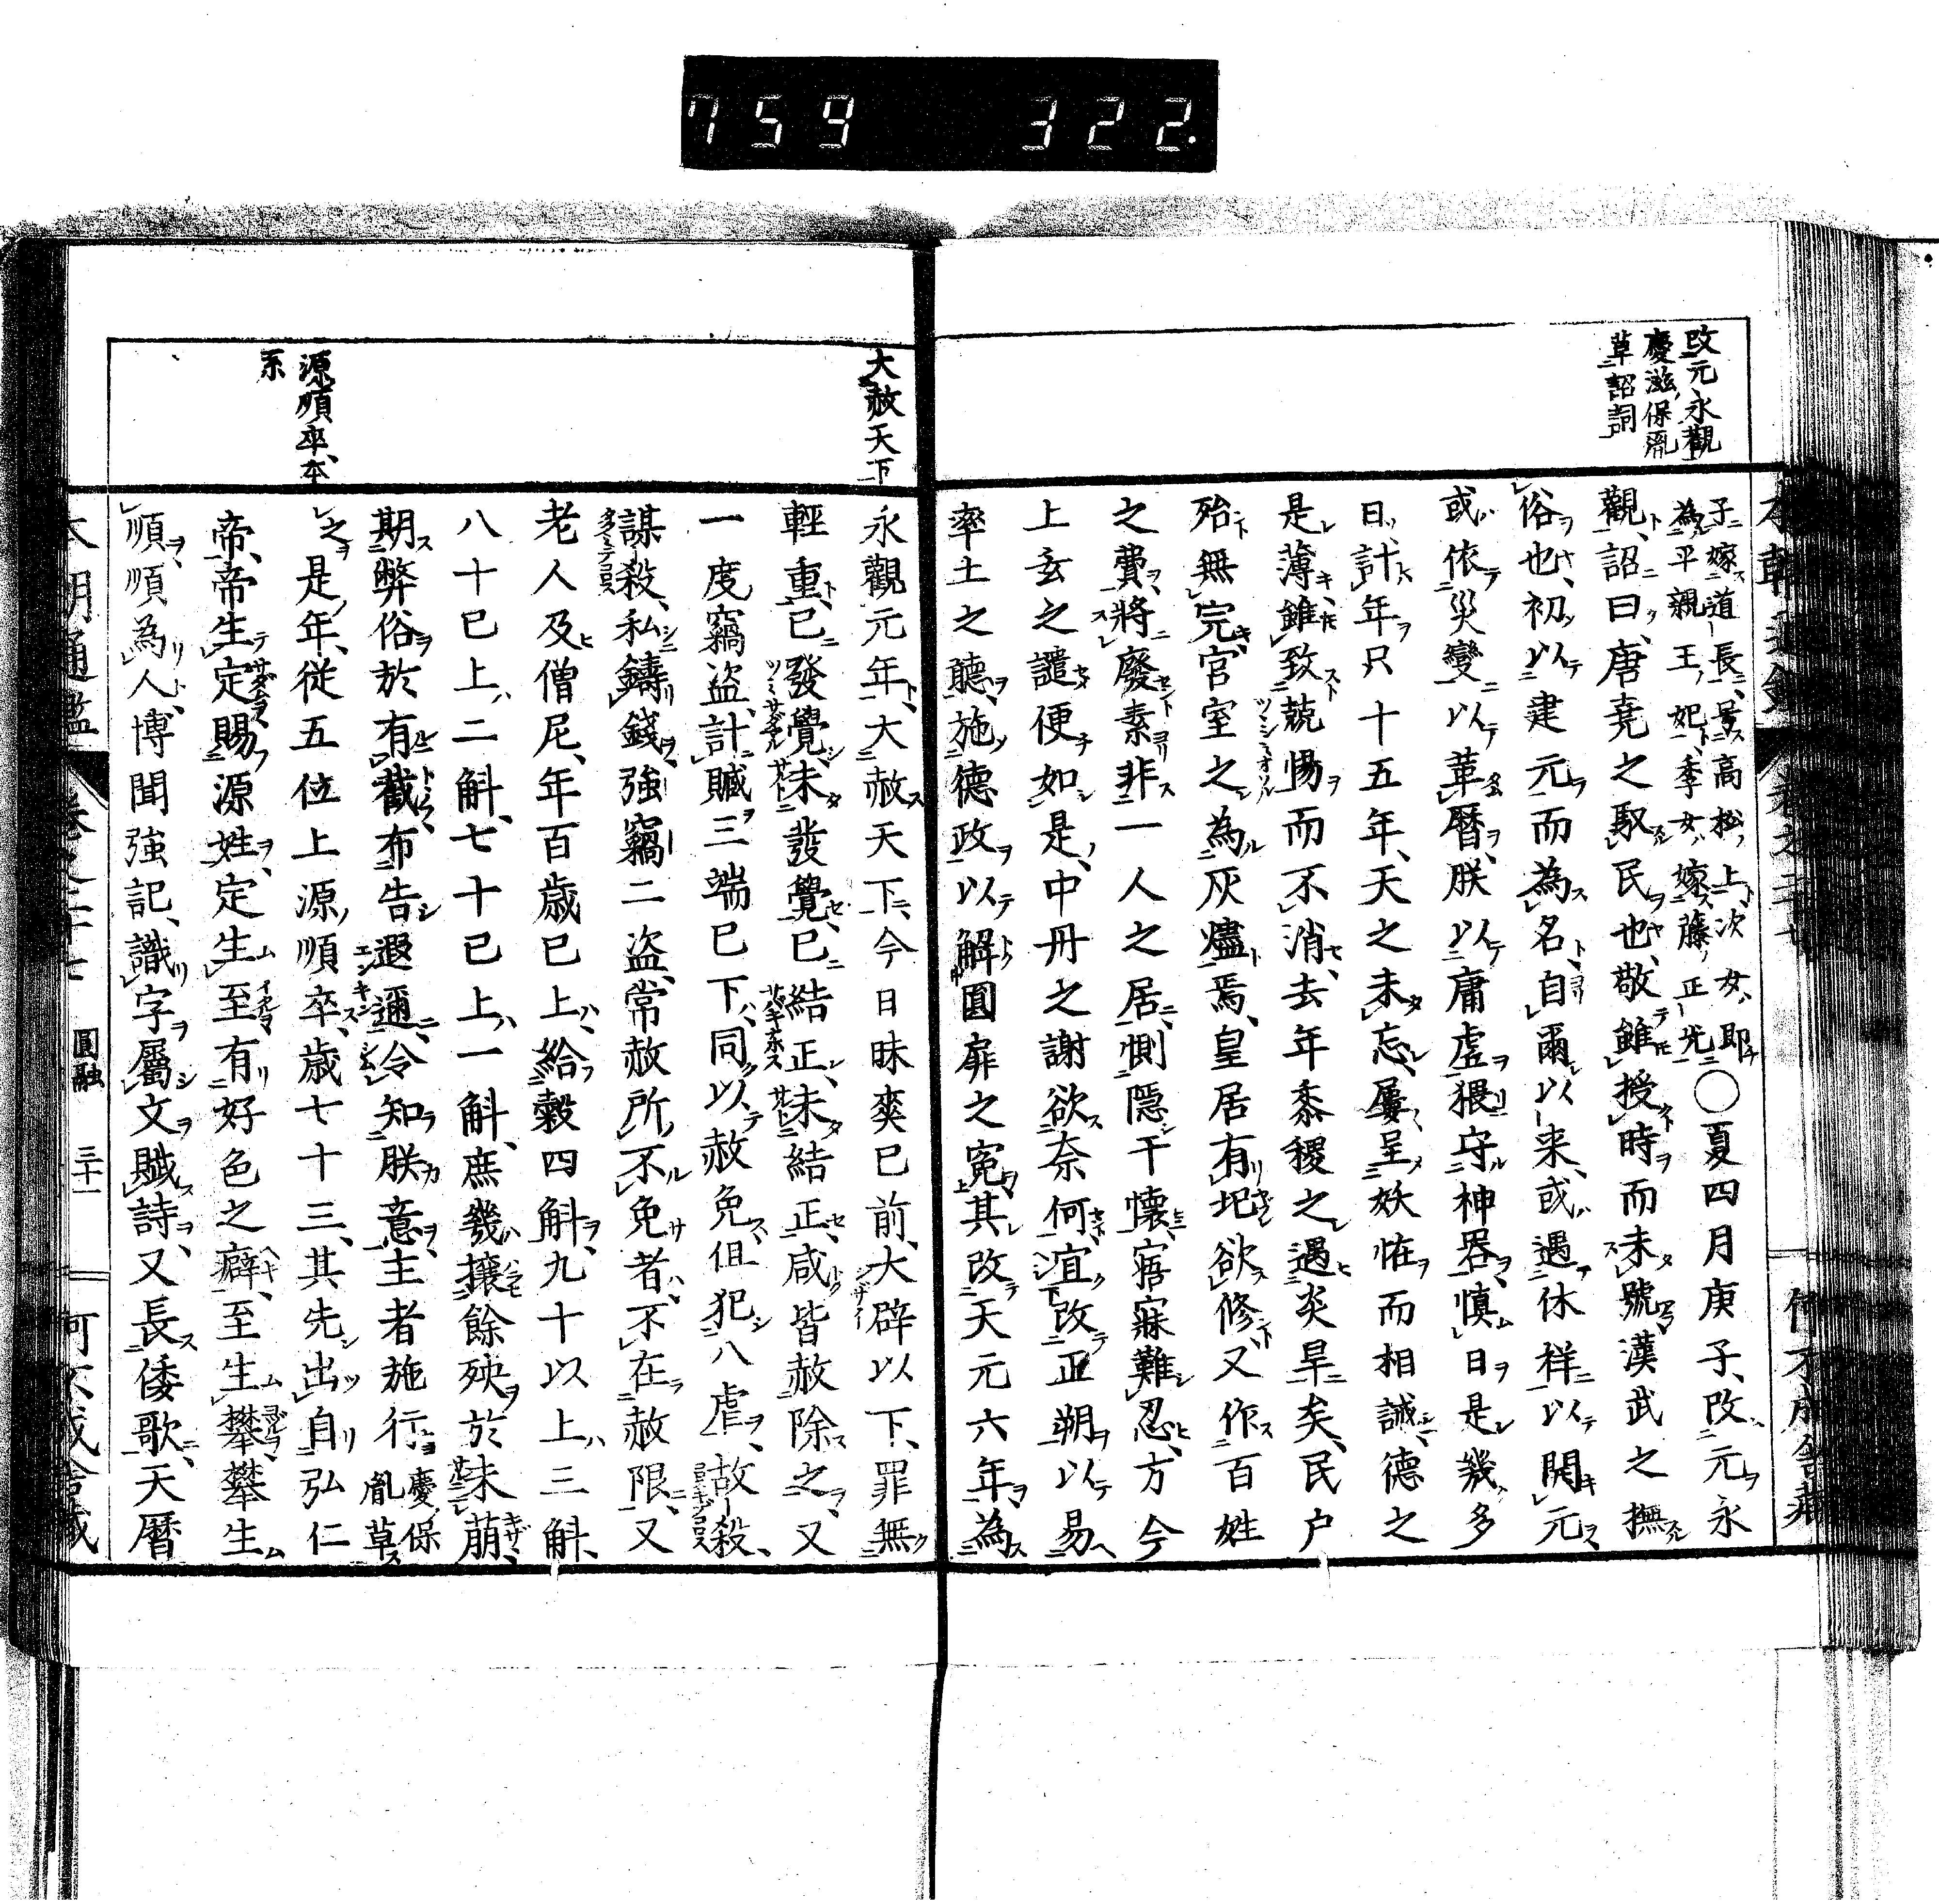 759 322.
改元永觀
慶滋保胤
草詔詞
子嫁道長景高松上次女即
為平親王妃季女嫁藤正光○夏四月庚子改元永
觀詔曰唐堯之馭民也敬雖授時而未號漢武之撫
俗也初以建元而為名自爾以来或遇休祥以開元
或依災變以革暦朕以庸虛猥守神器慎日是幾多
日計年只十五年天之未忘屢呈妖恠而相誡德之
是薄雖致兢惕而不消去年黍稷之遇炎旱矣民戸
殆無完官室之為灰燼焉皇居有圯欲修又作百姓
之費將廢素非一人之居惻隠于懐寤寐難忍方今
上玄之譴便如是中丹之謝欲奈何宜改正朔以易
率土之聽施德政以解圓扉之寃其改天元六年為
大赦天下
源順卒本
系
永觀元年大赦天下今日昧爽已前大辟以下罪無
輕重已發覺未發覺已結正未結正咸皆赦除之又
一度竊盗計贓三端已下同以赦免但犯八虐故殺
謀殺私鑄錢強竊二盗常赦所不免者不在赦限又
老人及僧尼年百歳已上給穀四斛九十以上三斛
八十已上二斛七十已上一斛庶幾攘餘殃於未萌
期弊俗於有截布告遐邇令知朕意主者施行慶保胤草
之是年従五位上源順卒歳七十三其先出自弘仁
帝帝生定賜源姓定生至有好色之癖至生攀攀生
順順為人博聞強記識字屬文賦詩又長倭歌天暦
圓融 三十一